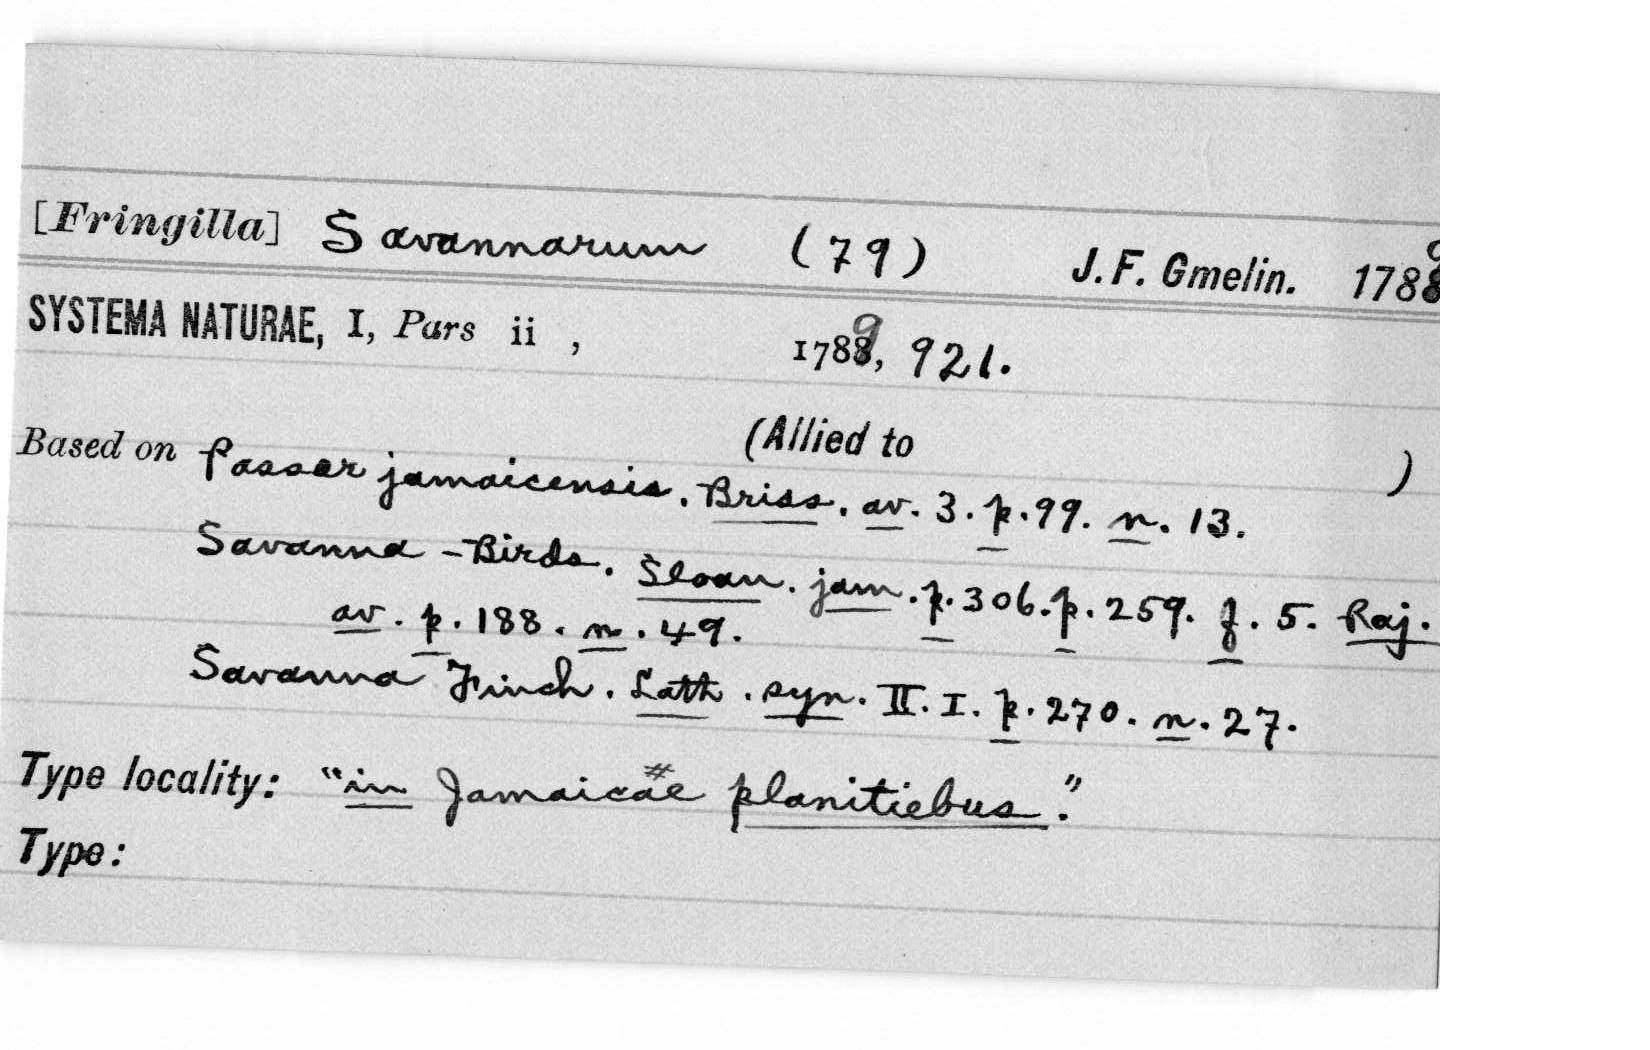 [Fringilla] Savannarum (79) J. F. Gmelin. 1789
SYSTEMA NATURAE, I, Pars ii , 1789, 921.
(Allied to )
Based on Passer jamaicensis. Briss. av. 3. p. 99. n. 13.
Savanna - Birds. Sloan. jam. p. 306. p. 259. f. 5. Raj.
av. p. 188. n. 49.
Savanna Finch. Lath. syn. II. I. p. 270. n. 27.
Type locality: "in Jamaicae planitiebus."
#
Type: